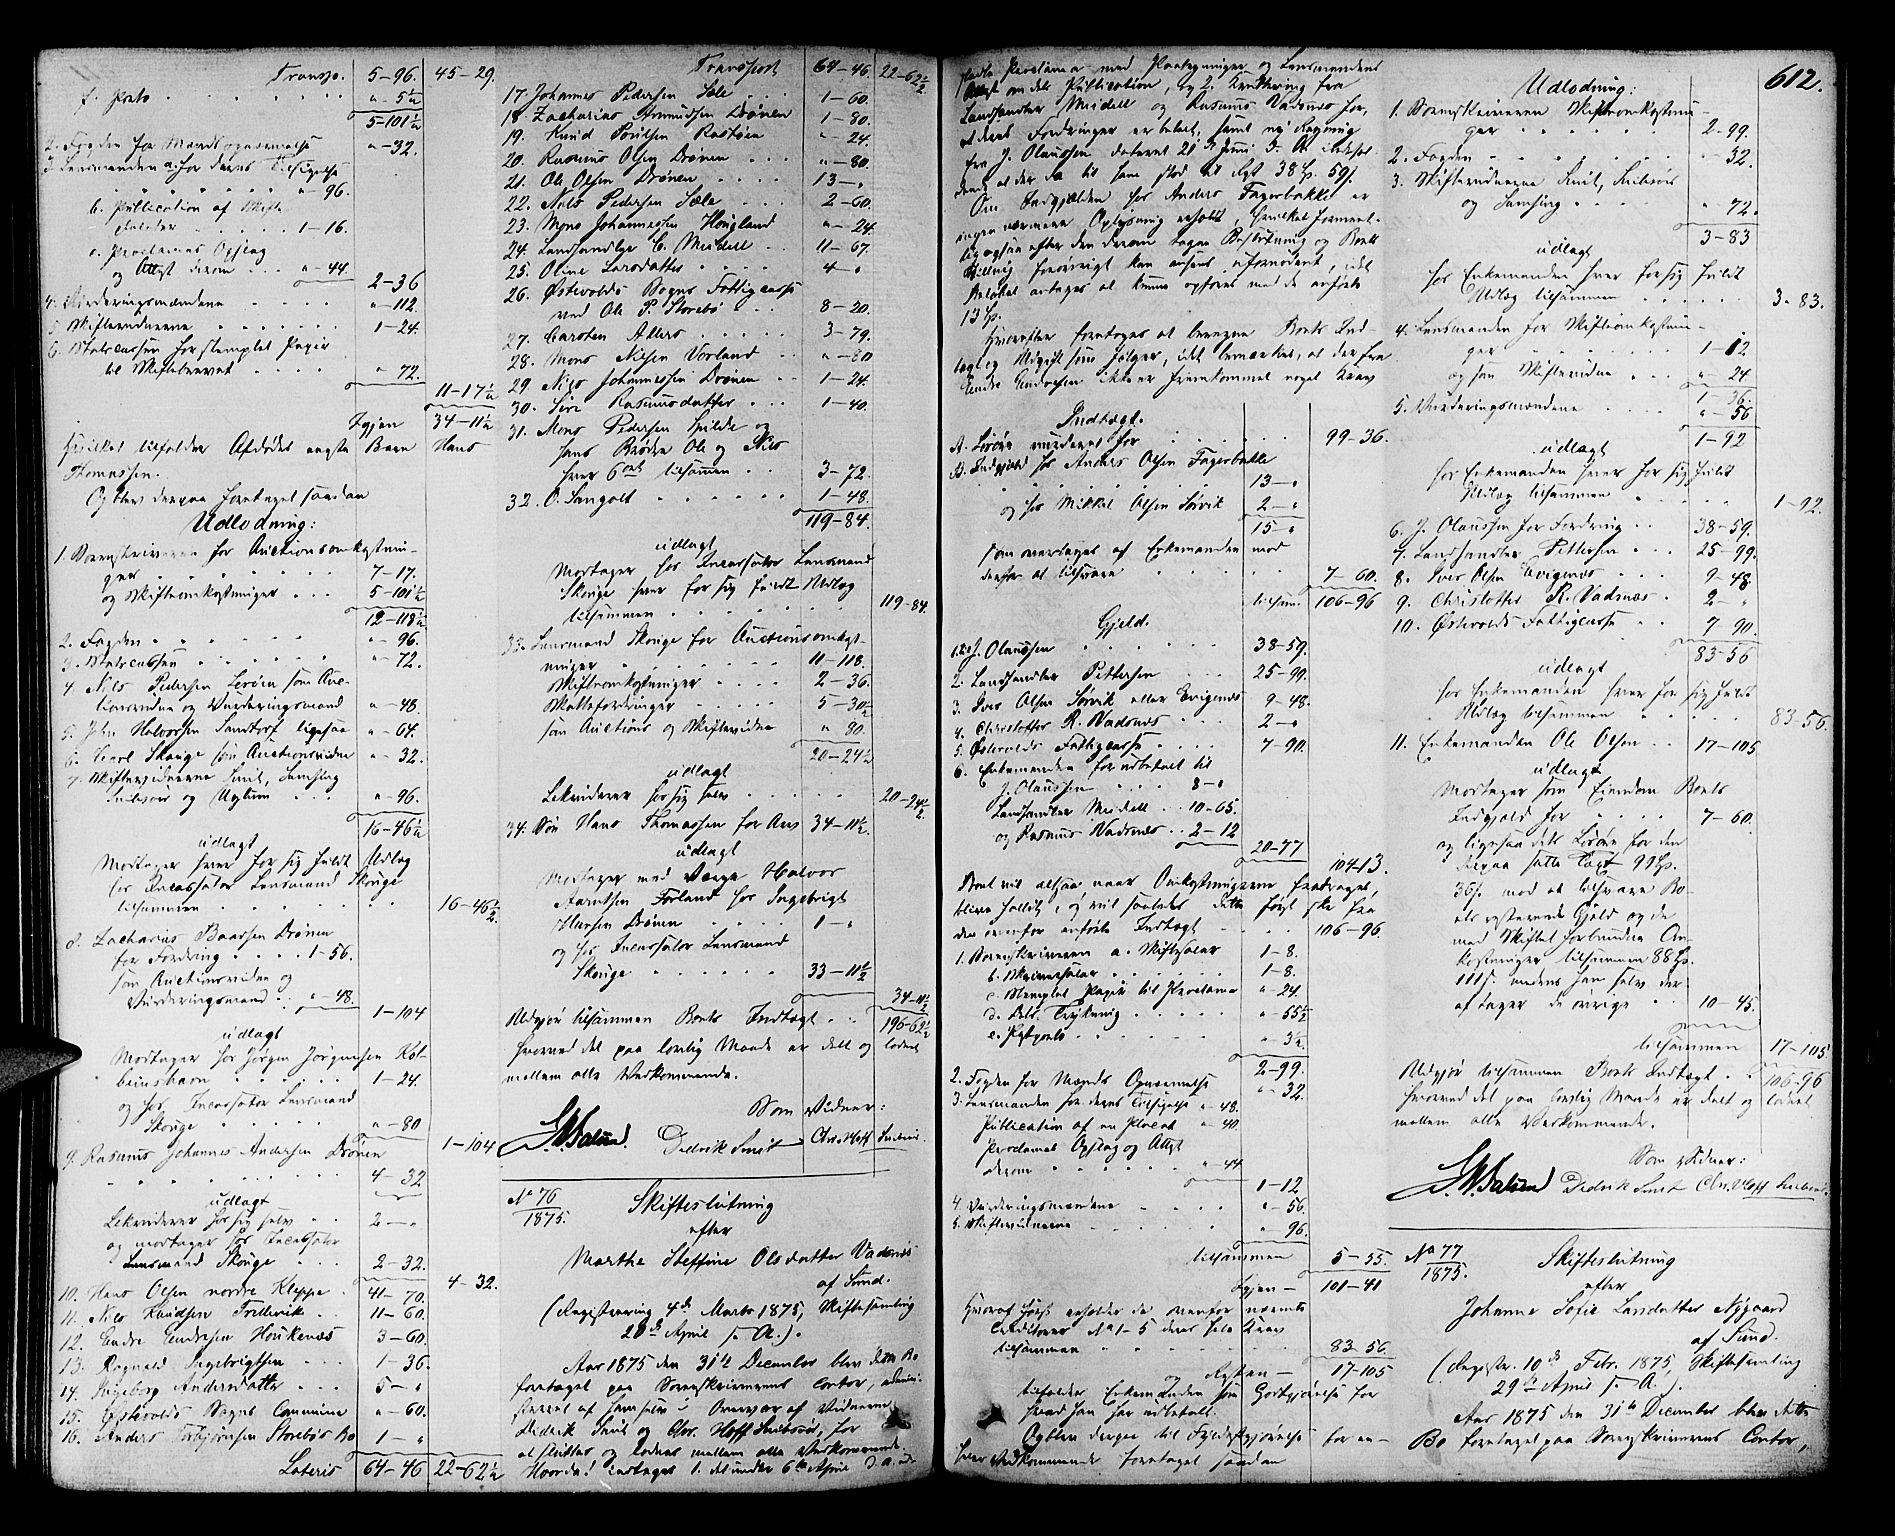 Transp. 5-96. 45-29.
f. Porto " " " " " "-5½
5-101½
2. Fogden for Mænds Opnævnelse "-32.
3. Lensmanden a. for deres Tilsigelse
" " " " " "-96.
b. Publication af Skifte-
placater . . . . 1-16.
c. Proclamas Opslag
og Attest derom . . . "-44.
2-36
4. Vurderingsmændene . . . "-112.
5. Skiftevidnerne . . . . 1-24.
6. Statscassen for stemplet Papir
til Skiftebrevet . . . . "-72.
11-17½
Igjen 34-11½
Hvilket tilfalder Afdødes eneste Barn Hans
Thomassen.
Og blev derpaa foretaget saadan
Udlodning:
1. Sorenskriveren for Auctionsomkostnin-
ger " " " " " 7-17.
og Skifteomkostninger . . . 5-101½
12-118½
2. Fogden " " " " " "-96.
3. Statscassen " " " " "-72.
4. Nils Pedersen Lerøen som Auc-
tionsvidne og Vurderingsmand "-48.
5. John Halvorsen Sandtorf ligesaa "-64.
6. Carl Skouge som Auctionsvidne "-32.
7. Skiftevidnerne Smit, Samsing
Suhrsøe og . . . "-96.
16-46½
udlagt
Modtager hver for sig fuldt Udlæg
hos Incassator Lensmand Skouge
tilsammen " " " " " 16-46½
8. Zacharias Baarsen Drønen
for Fordring . . . . 1-56.
som Auctionsvidne og
Vurderingsmand . . "-48.
1-104
udlagt
Modtager hos Jørgen Jørgensen Kol-
beinshavn " " " " 1-24.
og hos Incassator Lensmand
Skouge " " " " "-80
1-104
9. Rasmus Johannes Andersen Drønen
" " " " " " 4-32
udlagt
Likviderer hos sig selv . . 2-"
og modtager hos Incassator
Lensmand Skouge . . . 2-32.
4-32.
10. Hans Olsen nordre Kleppe . 41-70.
11. Nils Knudsen Trellevik . . 11-60.
12. Endre Endresen Houkenæs 3-60.
13. Rognald Ingebrigtsen . . . 1-36.
14. Ingeborg Andersdatter . . . 5-"
15. Østevolds Sogns Commune "-60.
16. Anders Torbjørnsen Storebøs Bo 1-"
Lateris 64-46 22-62½
Transport 64-46. 22-62½
17. Johannes Pedersen Sæle . . . 1-60.
18. Zacharias Amundsen Drønen 1-80.
19. Knud Poulsen Rostøen "-24.
20. Rasmus Olsen Drønen . . . "-80.
21. Ole Olsen Drønen . . . . 13-"
22. Nils Pedersen Sæle . . . 2-60.
23. Mons Johannessen Hougland "-24.
24. Landhandler C. Meidell . . 11-67.
25. Oline Larsdatter . . . . 4-"
26. Østevolds Sogns Fattigcasse
ved Ole P. Storebø . . . 8-20.
27. Carsten Alters . . . . 3-79.
28. Mons Nilsen Vorland . . . "-80
29. Nils Johannessen Drønen . . 1-24.
30. Siri Rasmusdatter . . . 1-40.
31. Mons Pedersen Hilde og
hans Brødre Ole og Nils
hver 6ort tilsammen . . 3-72.
32. O. Langolt " " " " " 1-48.
119-84.
udlagt
Modtager hos Incassator Lensmand
Skouge hver for sig fuldt Udlæg
tilsammen " " " " " 119-84.
33. Lensmand Skouge for Auctionsomkost-
ninger " " " " " 11-118.
Skifteomkostninger . . . . 2-36.
Restefordringer . . . . 5-30½
som Auctions og Skiftevidne "-80.
20-24½
udlagt
Likviderer hos sig selv . . . . 20-24½
34. Søn Hans Thomassen for Arv 34-11½.
udlagt
Modtager med Værge Halvor
Aamodtsen Forland hos Ingebrigt
Hansen Drønen . . . . 1-"
og hos Incassator Lensmand
Skouge " " " " " 33-11½
34-11½
Udgjør tilsammen Boets Indtægt . . 196-62½
hvorved det paa lovlig Maade er delt og loddet
mellem alle Vedkommende.
Som Vidner:
Didrik Smit Chr. Hoff Suhrsøe.
No 76
1875.
Skifteslutning
efter
Marthe Steffine Olsdatter Vadsnæs
af Sund.
(Registrering 4de Marts 1875, Skiftesamling
28de April s. A.).
Aar 1875 den 31te December blev dette Bo
foretaget paa Sorenskriverens Contor, admini-
streret af ham selv i Overvær af Vidnerne
Didrik Smit og Chr. Hoff Suhrsøe, for
at sluttes og loddes mellem alle Vedkommende.
Hvorda! indtaget 1. det under 6te April d. A. ud-
612.
stedte Proclama med Paategninger og Lensmandens
Attest om dets Publication, og 2. Qvittering fra
Landhandler Meidell og Rasmus Vadsnæs for,
at deres Fordringer er betalt, samt ny Regning
fra J. Olaussen dateret 21de Juni d. A. udvi-
sende at der da til ham stod til Rest 38 Sp. 59 s.
Om Indgjælden hos Anders Fagerbakke er
ingen nærmere Oplysning erholdt, hvilket formeent-
lig ogsaa efter den derom tagne Beslutning og Boets
Stilling forøvrigt kan ansees ufornødent, idet
Beløbet antages at kunne opføres med de anførte
13 Sp.
Herefter foretoges at beregne Boets Ind-
tægt og Udgift som følger, idet bemærkes, at der fra
Endre Endresen ikke er fremkommet noget Krav
Indtægt.
A. Løsøre vurderet for . . . . . 99-36.
B. Indgjæld hos Anders Olsen Fagerbakke
13-"
og hos Mikkel Olsen Sørvik 2-"
15-"
som overtages af Enkemanden mod
derfor at tilsvare . . . . 7-60.
tilsam. 106-96
Gjeld.
1. J. Olaussen . . . . . 38-59.
2. Landhandler Pettersen . . . 25-99.
3. Iver Olsen Sørvik eller Evigenæs 9-48.
4. Christoffer R. Vadsnæs . . . 2-"
5. Østevolds Fattigcasse . . . . 7-90.
6. Enkemanden for udbetalt til
J. Olaussen . . . . 8-"
Landhandler Meidell . . 10-65.
og Rasmus Vadsnæs . . 2-12
20-77
104-13.
Boet vil altsaa, naar Omkostningerne fradrages,
blive fallit, og vil saaledes dette først ske fra
den ovenfor anførte Indtægt . . . . 106-96.
1. Sorenskriveren a. Skiftesalær 1-8.
b. Skriversalær . . . . 1-8.
c. Stemplet Papir til Proclama "-24.
d. Dets Trykning . . . . "-55½
e. Postporto . . . . "-3½.
2-99.
2. Fogden for Mænds Opnævnelse "-32.
3. Lensmanden for deres Tilsigelse "-48.
Publication af en Placat "-40
Proclamas Opslag og Attest
derom " " " " "-44
1-12
4. Vurderingsmændene . . . . "-56.
5. Skiftevidnerne . . . . "-96.
tilsammen 5-55.
Igjen - 101-41
Hvoraf først erholder de ovenfor nævnte
Creditorer No 1-5 deres hele Krav
tilsammen " " " " " 83-56.
og Resten - 17-105
tilfalder Enkemanden som Godtgjørelse for
hvad han har udbetalt.
Og blev derpaa til Fyldestgjørelse for en-
hver Vedkommende foretaget saadan
Udlodning:
1. Sorenskriveren Skifteomkostnin-
ger " " " " " 2-99.
2. Fogden " " " " " "-32.
3. Skiftevidnerne Smit, Suhrsøe
og Samsing . . . . "-72.
3-83
udlagt
hos Enkemanden hver for sig fuldt
Udlæg tilsammen . . . . . 3-83.
4. Lensmanden for Skifteomkostnin-
ger " " " " " 1-12
og som Skiftevidne . . "-24
1-36.
5. Vurderingsmændene . . . . "-56
1-92
udlagt
hos Enkemanden hver for sig fuldt
Udlæg tilsammen " " " " 1-92.
6. J. Olaussen for Fordring . . 38-59.
7. Landhandler Pettersen . . . 25-99.
8. Iver Olsen Evigenæs . . . 9-48
9. Christoffer R. Vadsnæs . 2-"
10. Østevolds Fattigcasse . . 7-90.
83-56
udlagt
hos Enkemanden hver for sig fuldt
Udlæg tilsammen . . . . . 83-56.
11. Enkemanden Ole Olsen . . 17-105.
udlagt
Modtager som Eiendom Boets
Indgjæld for . . . . 7-60.
og ligesaa dets Løsøre for den
derpaa satte Taxt 99 Sp.
36 s. mod at tilsvare Bo-
ets resterende Gjeld og de
med Skiftet forbundne Om-
kostninger tilsammen 88 Sp.
111 s. medens han selv der-
af tager de øvrige . . 10-45.
tilsammen 17-105
Udgjør tilsammen Boets Indtægt . . 106-96
hvorved det paa lovlig Maade er delt og loddet
mellem alle Vedkommende.
Som Vidner:
Didrik Smit Chr. Hoff Suhrsøe.
No 77
1875.
Skifteslutning
efter
Johanne Sofie Larsdatter Nygaard
af Sund.
(Registr. 10de Febr. 1875, Skiftesamling
29de April s. A.).
Aar 1875 den 31te December blev dette
Bo foretaget paa Sorenskriverens Contor,